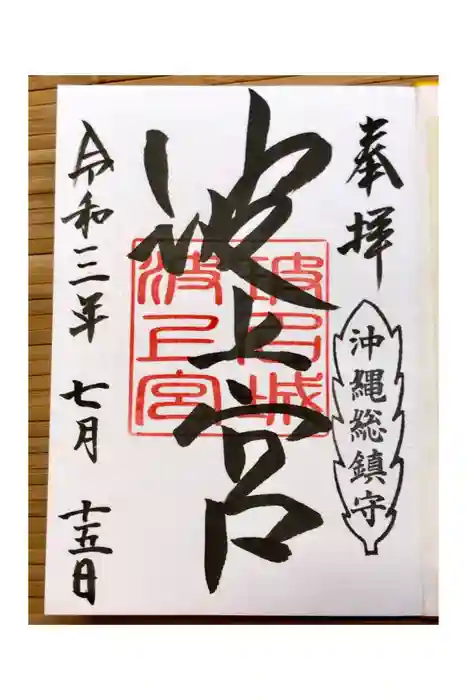 奉拝
沖縄総鎮守
波上宮
波上宮
令和三年 七月 十五日